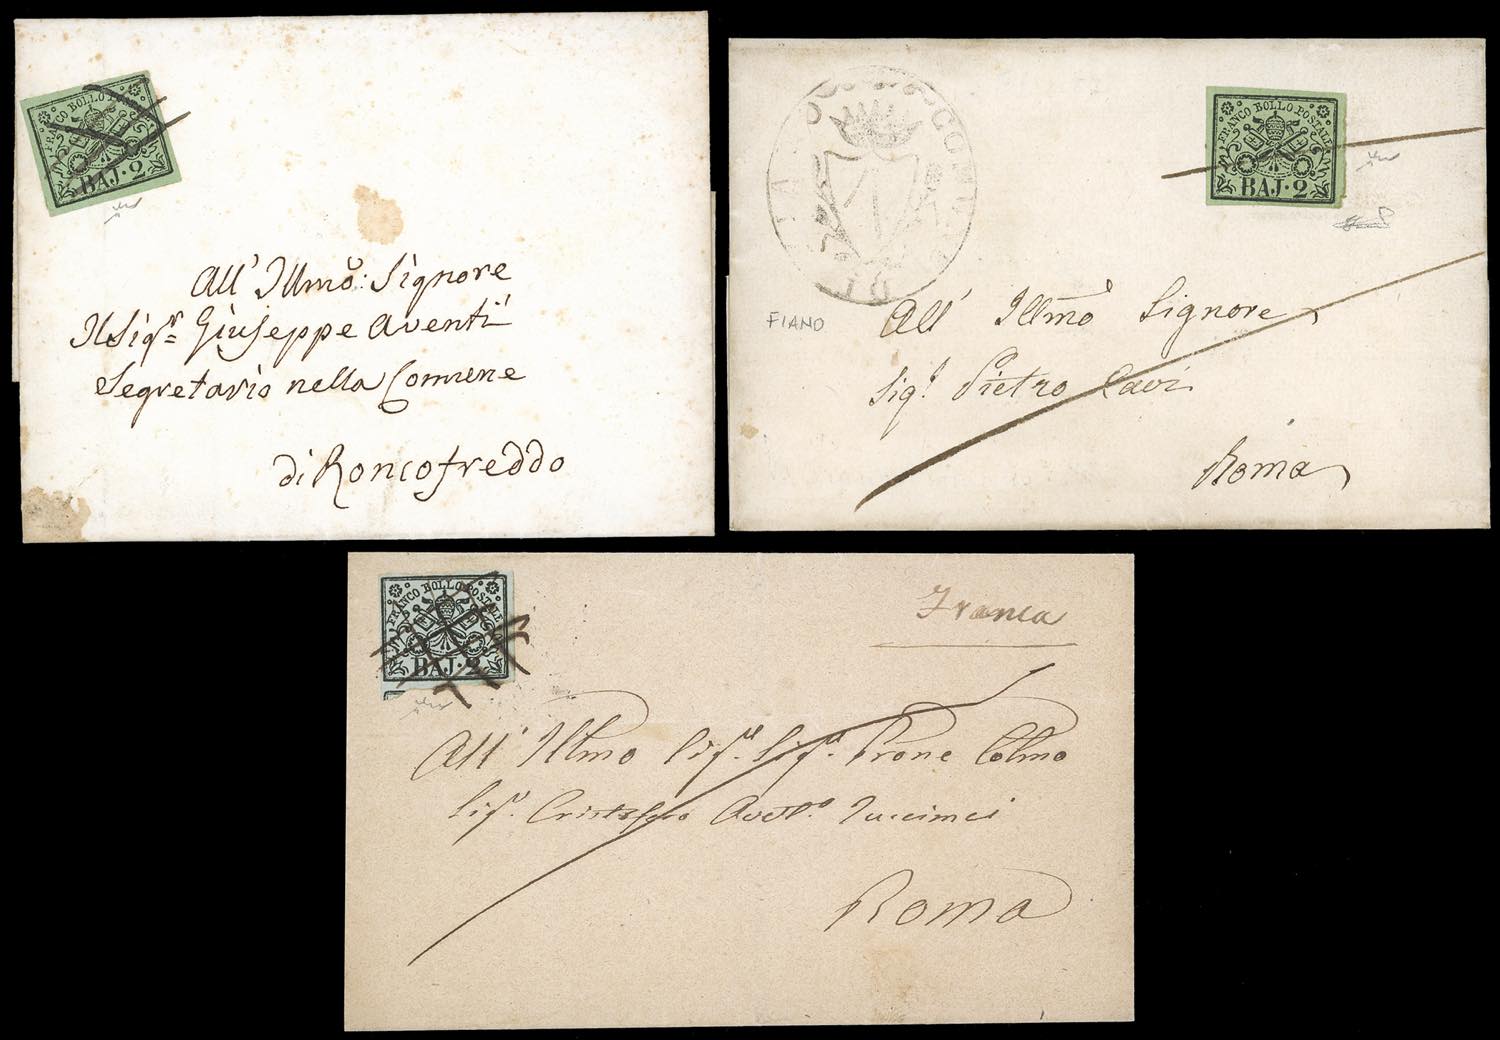 FRANCO BOLLO
BAJ·2
All' Illmo: Signore
Il Sigr. Giuseppe Aventi
Segretario nella Comune
di Roncofreddo
COMUN
DI
FRANCO BOLLO POSTALE
BAJ·2
FIANO
All' Illmo Signore
Sigr. Pietro Cavi
Roma
FRANCO BOLLO POSTALE
BAJ·2
Franca
All' Illmo Sigr. Sigr. Prone Colmo
Sigr. Cristoforo
Roma